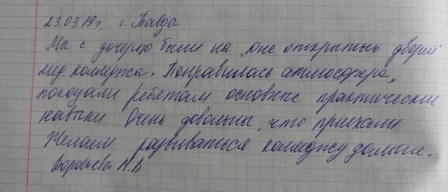 23.03.19г. г. Тавда
Мы с дочерью были на дне открытых дверей
мед. колледжа. Понравилась атмосфера,
показали ребятам основные практические
навыки. Очень довольны, что приехали
Желаем развиваться колледжу дальше.
Воробьева Н.В